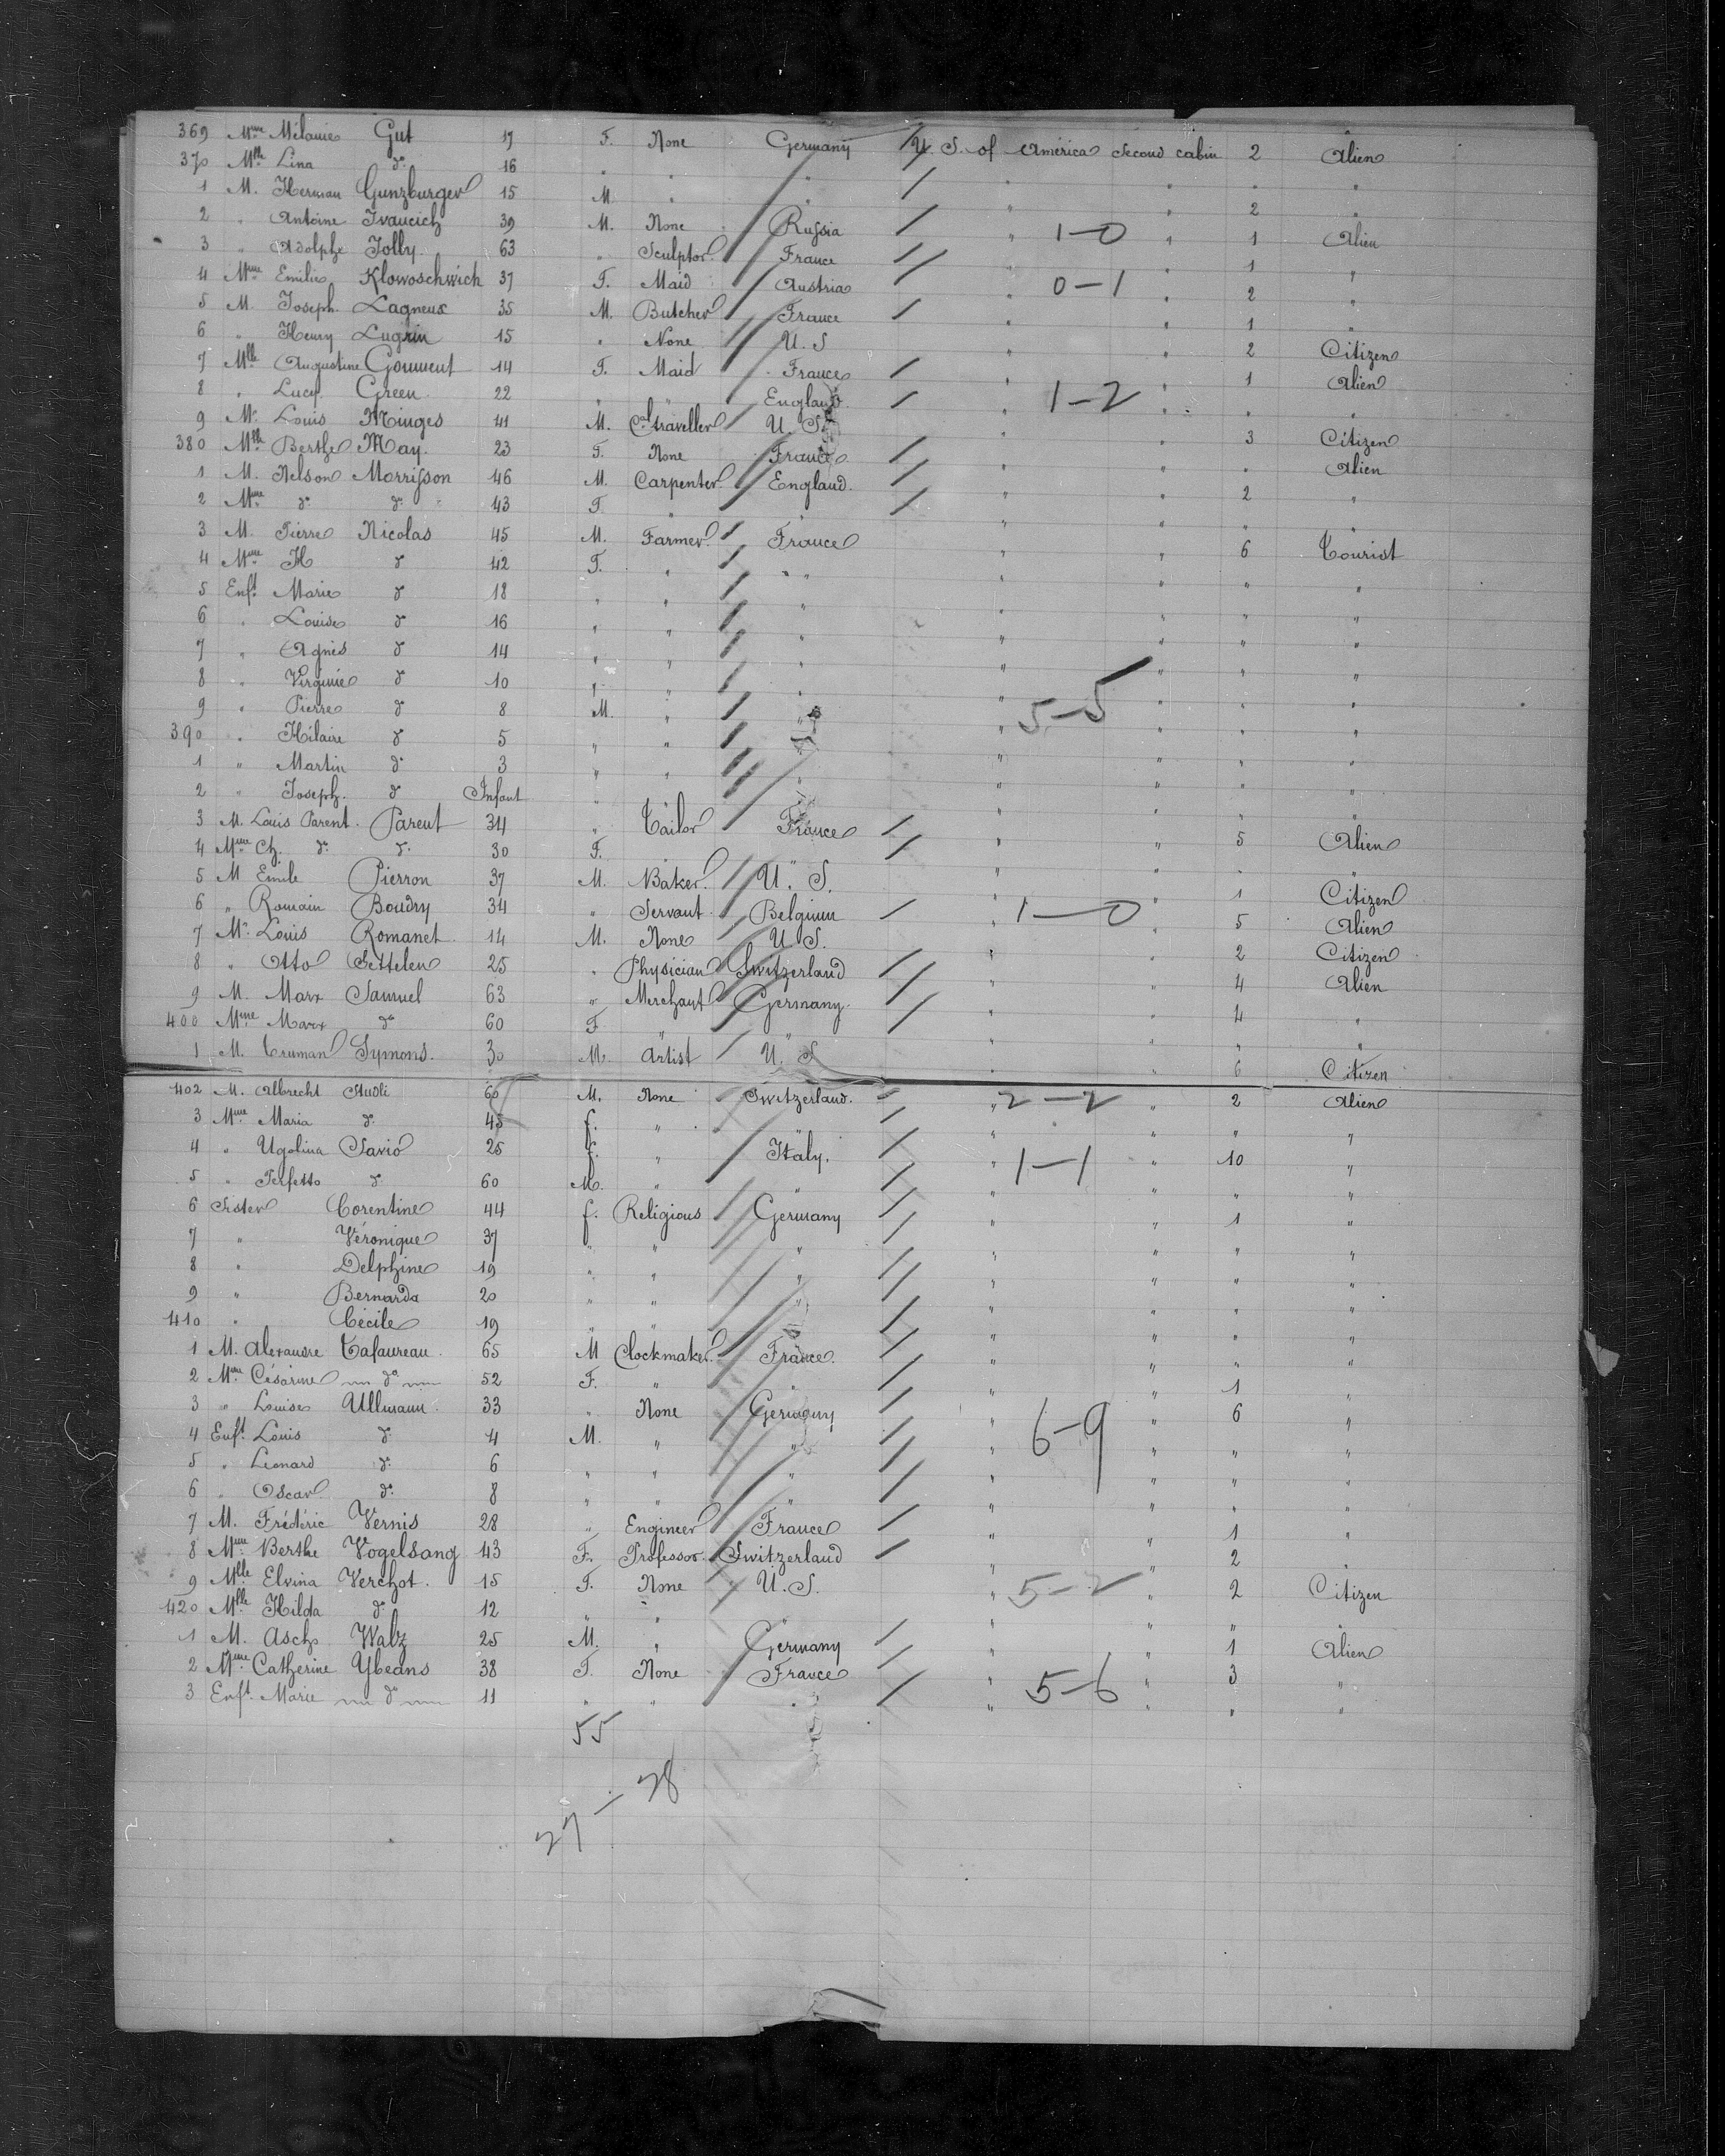 369 Mme Mélanie Gut 17 F. None Germany U. S. of America Second cabin 2 Alien
370 Mlle Lina do 16 " " " " " " "
1 M. Herman Gunzburger 15 M. " " " " 2 "
2 " Antoine Ivancich 39 M. None Russia " 1-0 " 1 Alien
3 " Adolphe Jolly 63 " Sculptor France " " 1 "
4 Mme Emilie Klowoschwich 37 F. Maid Austria " 0-1 " 2 "
5 M. Joseph Lagneux 35 M. Butcher France " " 1 "
6 " Henry Lugrin 15 " None U. S " " 2 Citizen
7 Mlle Augustine Gouvient 14 F. Maid France " " 1 Alien
8 " Lucy Green 22 " " England " 1-2 " " "
9 Mr. Louis Minges 41 M. Cal traveller U. S. " " 3 Citizen
380 Mlle Berthe May. 23 F. None France " " " Alien
1 M. Nelson Morrisson 46 M. Carpenter England. " " 2 "
2 Mme do do 43 F. " " " " " "
3 M. Pierre Nicolas 45 M. Farmer France " " 6 Tourist
4 Mme H do 42 F. " " " " " "
5 Enft Marie do 18 " " " " " " "
6 " Louise do 16 " " " " " " "
7 " Agnès do 14 " " " " " " "
8 " Virginie do 10 " " " " " " "
9 " Pierre do 8 M. " " " 5-5 " " "
390 " Hilaire do 5 " " " " " " "
1 " Martin do 3 " " " " " " "
2 " Joseph. do Infant " " " " " " "
3 M. Louis Parent. Parent 34 " Tailor France " " 5 Alien
4 Mme Ch. do do 30 F. " " " " " "
5 M Emile Pierron 37 M. Baker. U. S. " " 1 Citizen
6 " Romain Boudry 34 " Servant Belgium " 1-0 " 5 Alien
7 Mr. Louis Romanet 14 M. None U. S. " " 2 Citizen
8 " Otto Settelen 25 " Physician Switzerland " " 4 Alien
9 M. Marx Samuel 63 " Merchant Germany. " " 4 "
400 Mme Marx do 60 F " " " " " "
1 M. Truman Symons. 30 M. Artist U. S " " 6 Citizen
402 M. Albrecht Studli 60 M. None Switzerland. " 2-2 " 2 Alien
3 Mme Maria do 45 f. " " " " " "
4 " Ugolina Savio 25 f. " Italy. " 1-1 " 10 "
5 " Perfetto do 60 M. " " " " " "
6 Sister Corentine 44 f. Religious Germany " " 1 "
7 " Véronique 37 " " " " " " "
8 " Delphine 19 " " " " " " "
9 " Bernarda 20 " " " " " " "
410 " Cécile 19 " " " " " " "
1 M. Alexandre Tafaureau. 65 M Clockmaker. France. " " " "
2 Mme Césarine do 52 F. " " " " 1 "
3 " Louise Ullmann. 33 " None Germany " 6-9 " 6 "
4 Enft. Louis do 4 M. " " " " " "
5 " Léonard do 6 " " " " " " "
6 " Oscar do 8 " " " " " " "
7 M. Frédéric Vernis 28 " Engineer France " " 1 "
8 Mme Berthe Vogelsang 43 F. Professor Switzerland " " 2 "
9 Mlle Elvina Verchot. 15 F. None U. S. " 5-2 " 2 Citizen
420 Mlle Hilda do 12 " " " " " " "
1 M. Asch Walz 25 M. " Germany " " 1 Alien
2 Mme Catherine Ybeans 38 F. None France " 5-6 " 3 "
3 Enft. Marie do 11 " " " " " " "
55
27-28